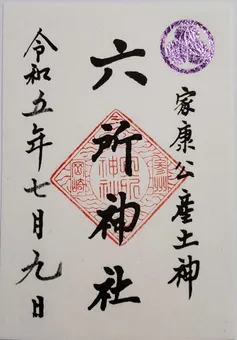 家康公産土神
六所神社
令和五年七月九日
岡崎